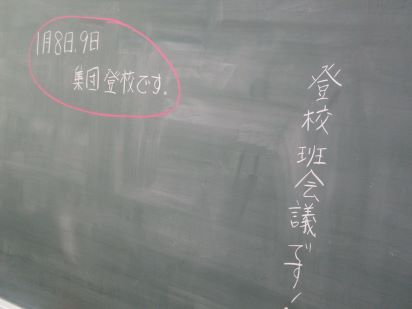 1月8日、9日
集団登校です.
登校班会議です!